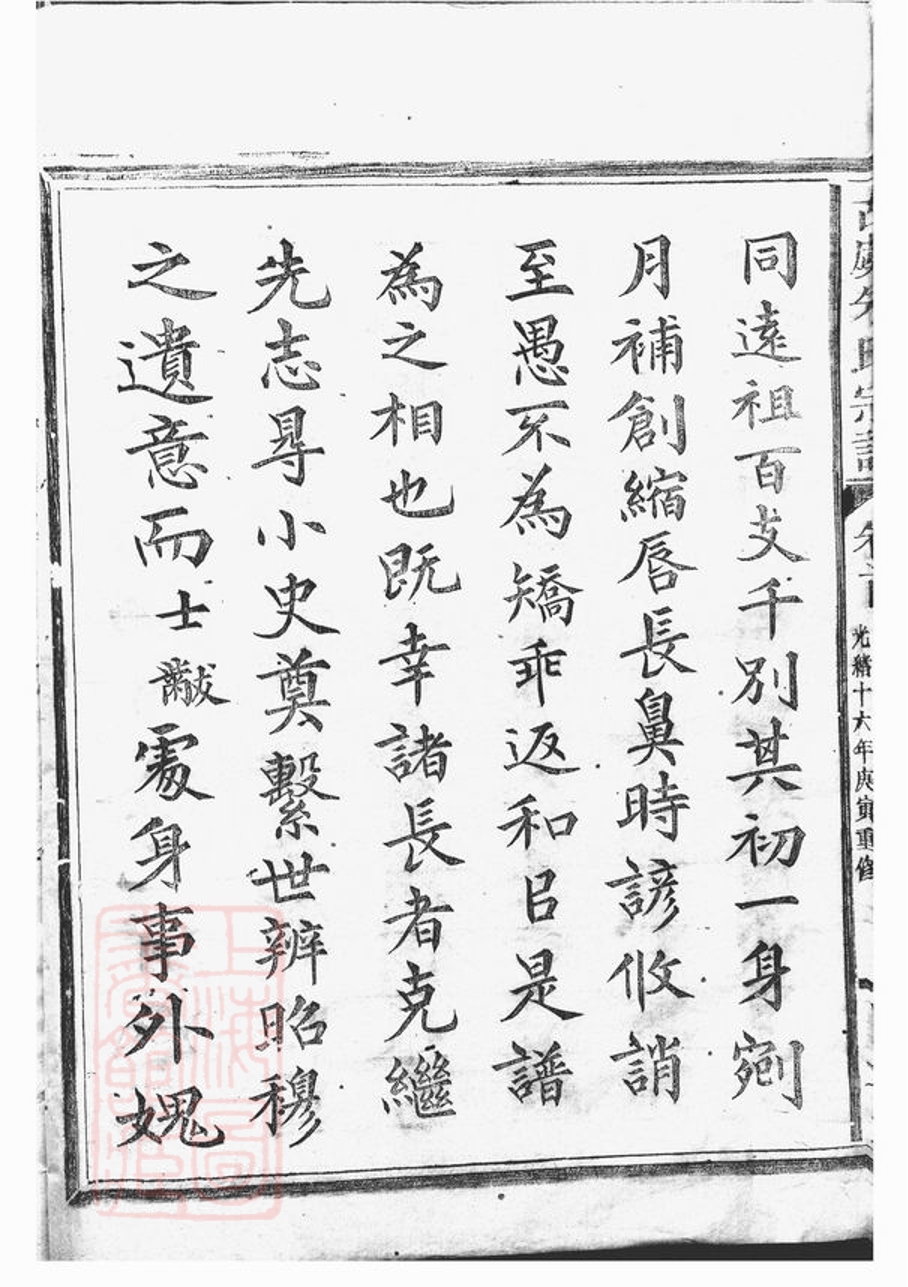 宗譜
光緒十六年庚寅重修
同遠祖百支千別其初一身剜
月補創縮唇長鼻時諺攸誚
至愚不為矯乖返和㠯是譜
為之相也既幸諸長者克繼
先志㝷小史奠繫世辨昭穆
之遺意而士黻處身事外媿